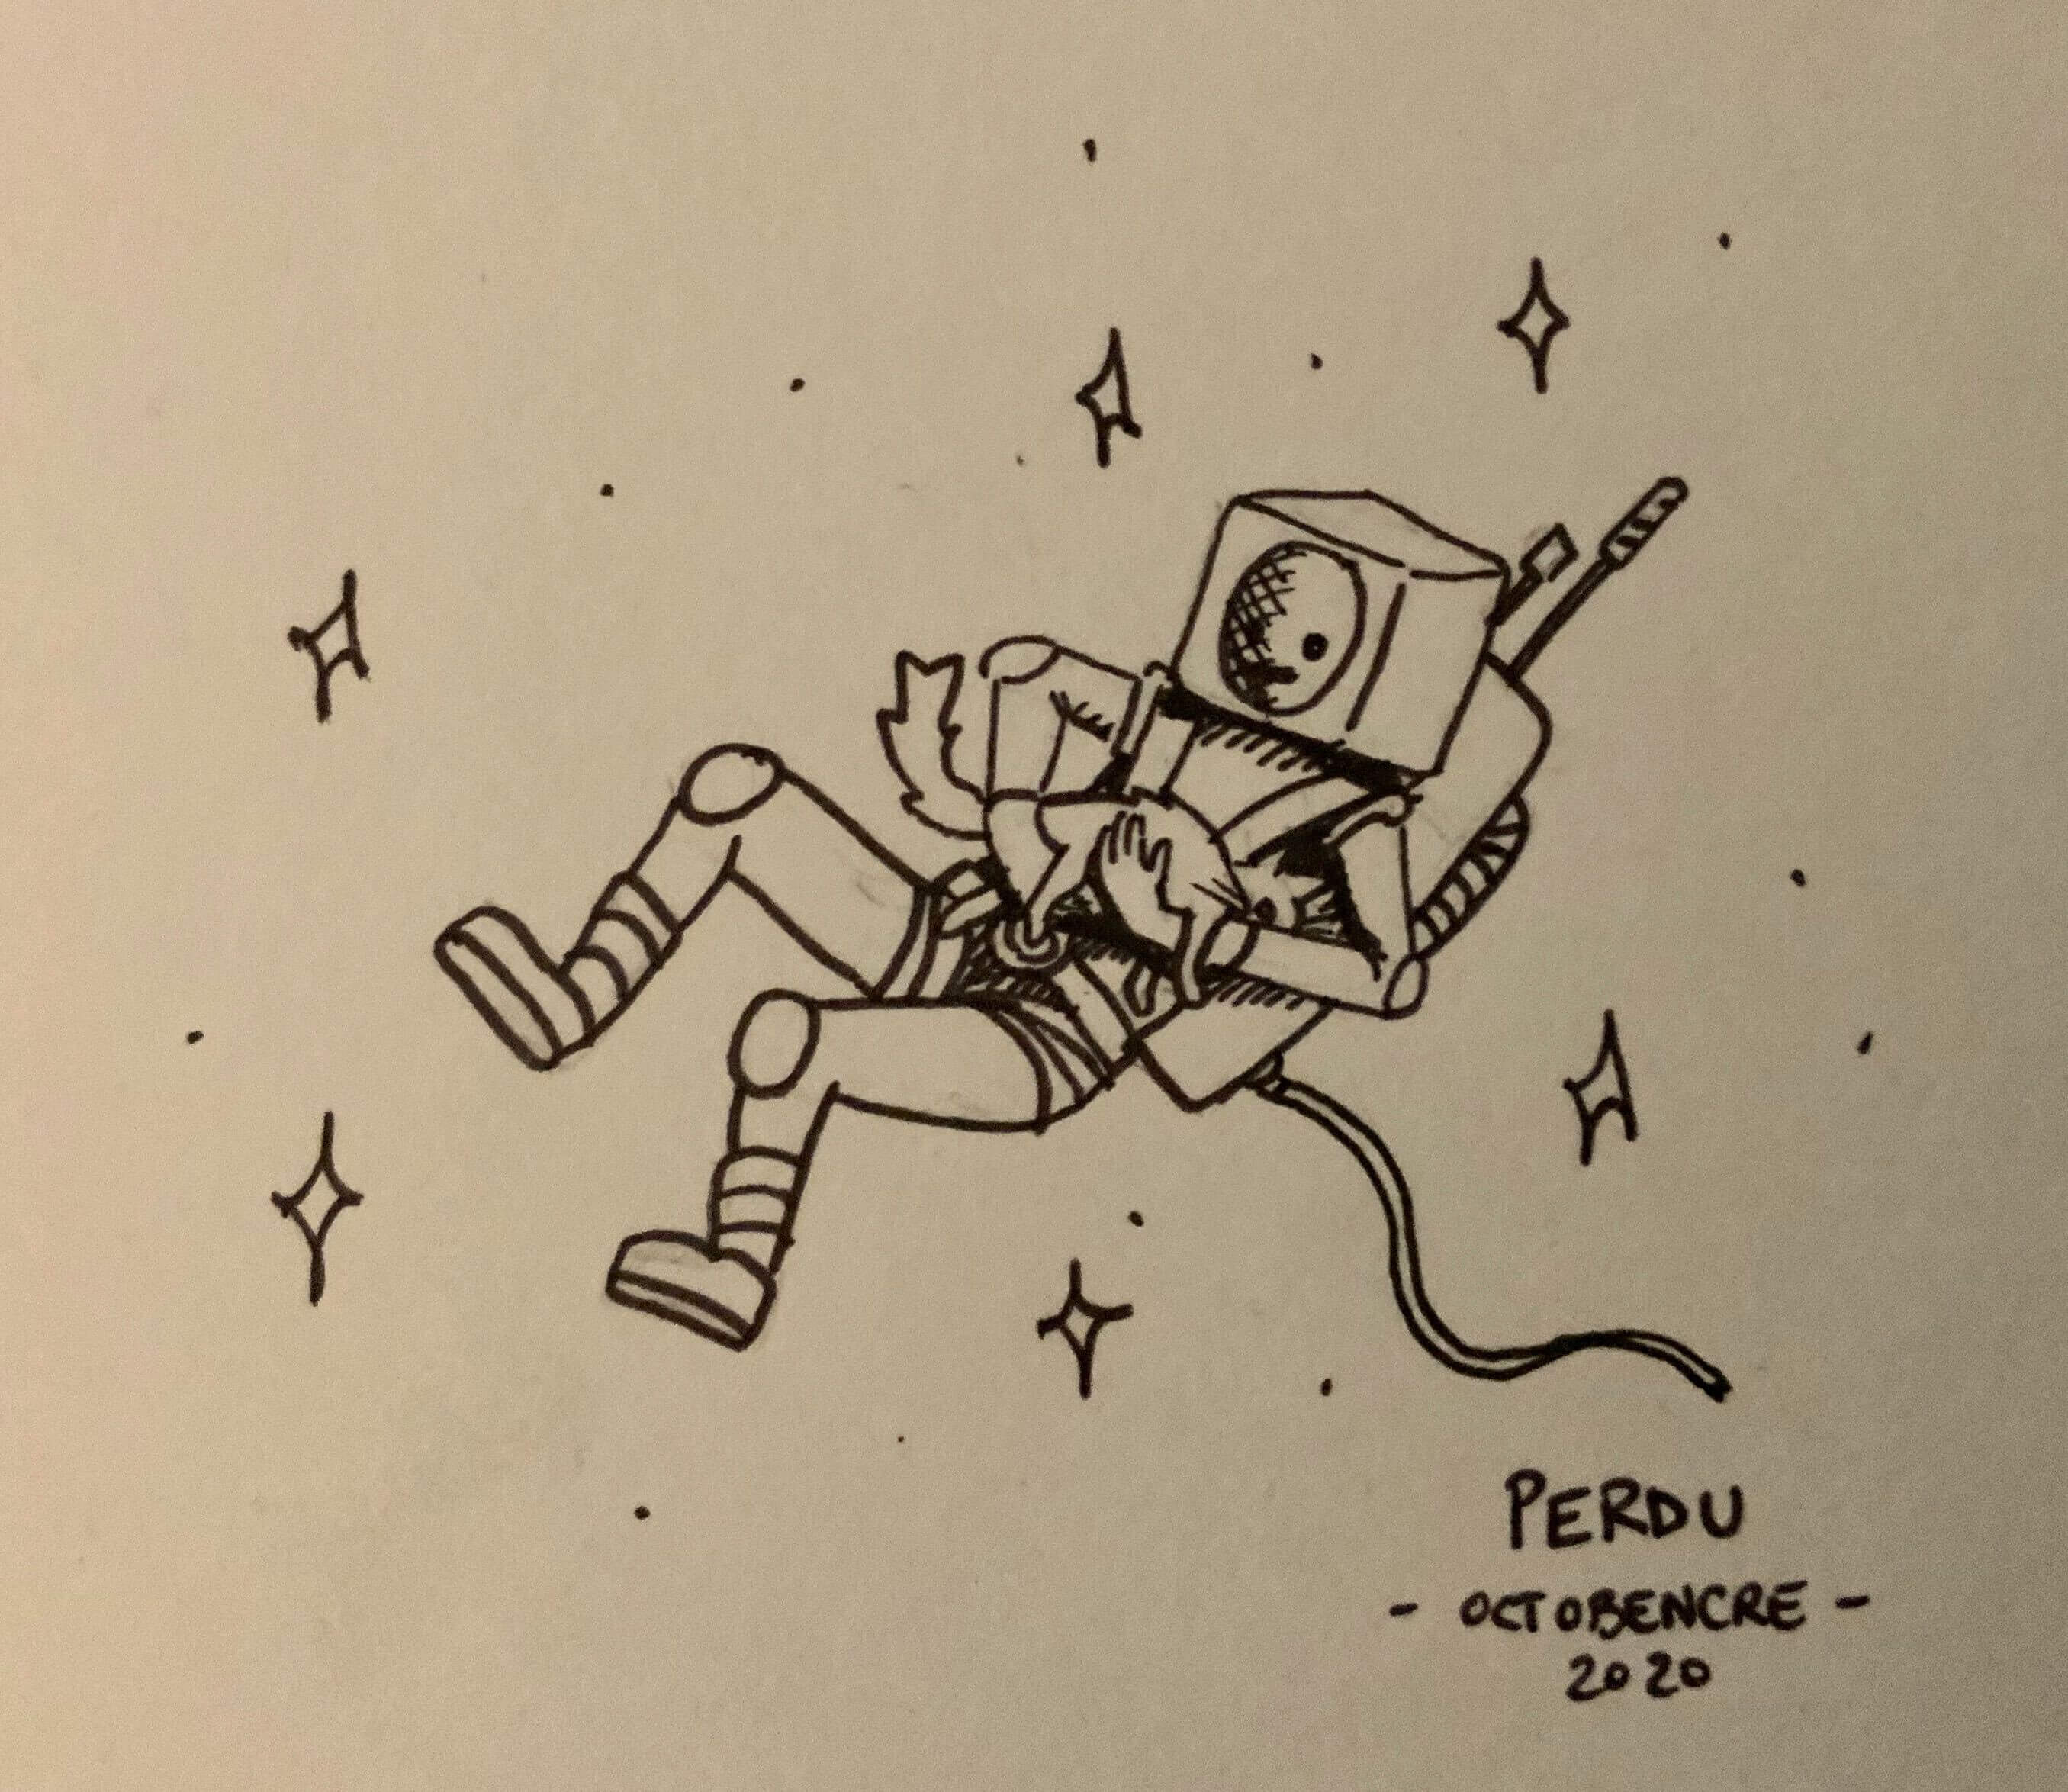 PERDU
- OCTOBENCRE -
2020